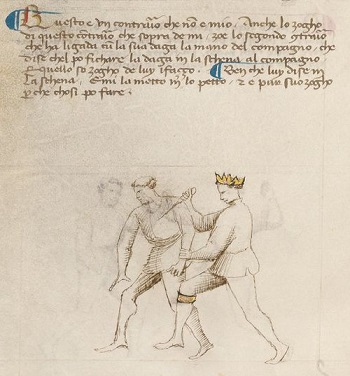 Questo e un contrario che non e mio. Anche lo zogho
di questo contrario che sopra de mi, zoe lo segondo contrario
che ha ligada cum la sua daga la mano del compagno, che
dise chel po fichare la daga in la schena al compagno
quello so zogho de luy i fazo. Ben che luy dise in
la schena, E mi la metto in lo petto, 2 e pur suo zogho
che chosi po fare.